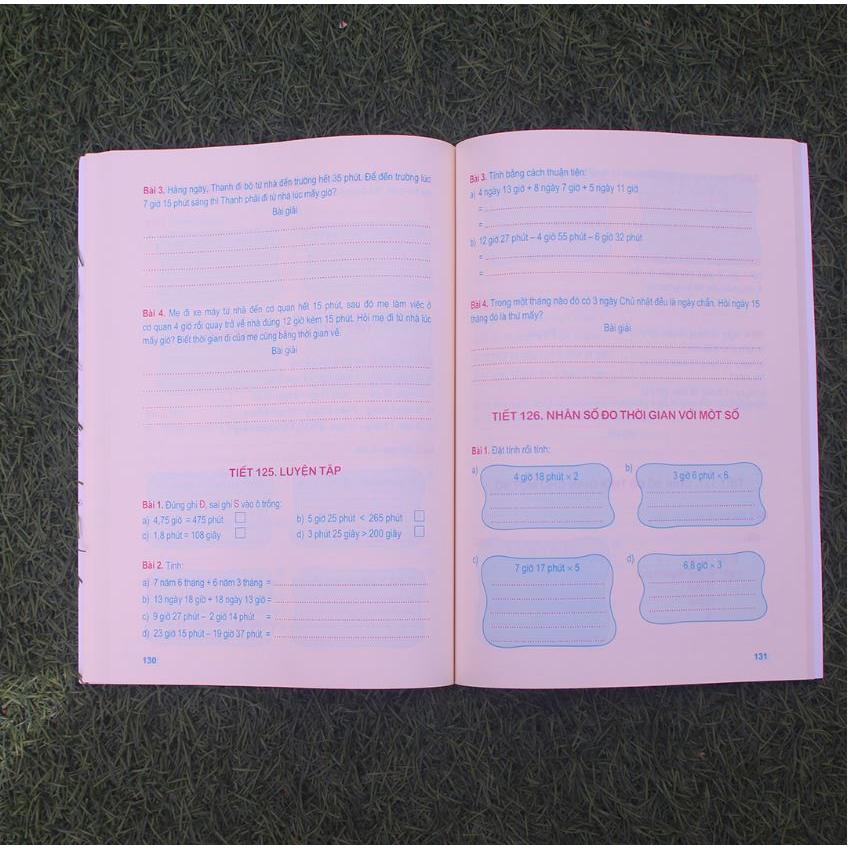 Bài 3. Hàng ngày, Thanh đi bộ từ nhà đến trường hết 35 phút. Để đến trường lúc
7 giờ 15 phút sáng thì Thanh phải đi từ nhà lúc mấy giờ?
Bài giải
Bài 4. Mẹ đi xe máy từ nhà đến cơ quan hết 15 phút, sau đó mẹ làm việc ở
cơ quan 4 giờ rồi quay trở về nhà đúng 12 giờ kém 15 phút. Hỏi mẹ đi từ nhà lúc
mấy giờ? Biết thời gian đi của mẹ cũng bằng thời gian về.
Bài giải
TIẾT 125. LUYỆN TẬP
Bài 1. Đúng ghi Đ, sai ghi S vào ô trống:
a) 4,75 giờ = 475 phút
b) 5 giờ 25 phút < 265 phút
c) 1,8 phút = 108 giây
d) 3 phút 25 giây > 200 giây
Bài 2. Tính:
a) 7 năm 6 tháng + 6 năm 3 tháng =
b) 13 ngày 18 giờ + 18 ngày 13 giờ =
c) 9 giờ 27 phút – 2 giờ 14 phút =
d) 23 giờ 15 phút – 19 giờ 37 phút =
130
Bài 3. Tính bằng cách thuận tiện:
a) 4 ngày 13 giờ + 8 ngày 7 giờ + 5 ngày 11 giờ
=
=
b) 12 giờ 27 phút – 4 giờ 55 phút – 6 giờ 32 phút
=
=
Bài 4. Trong một tháng nào đó có 3 ngày Chủ nhật đều là ngày chẵn. Hỏi ngày 15
tháng đó là thứ mấy?
Bài giải
TIẾT 126. NHÂN SỐ ĐO THỜI GIAN VỚI MỘT SỐ
Bài 1. Đặt tính rồi tính:
a) 4 giờ 18 phút × 2
b) 3 giờ 6 phút × 6
c) 7 giờ 17 phút × 5
d) 6,8 giờ × 3
131